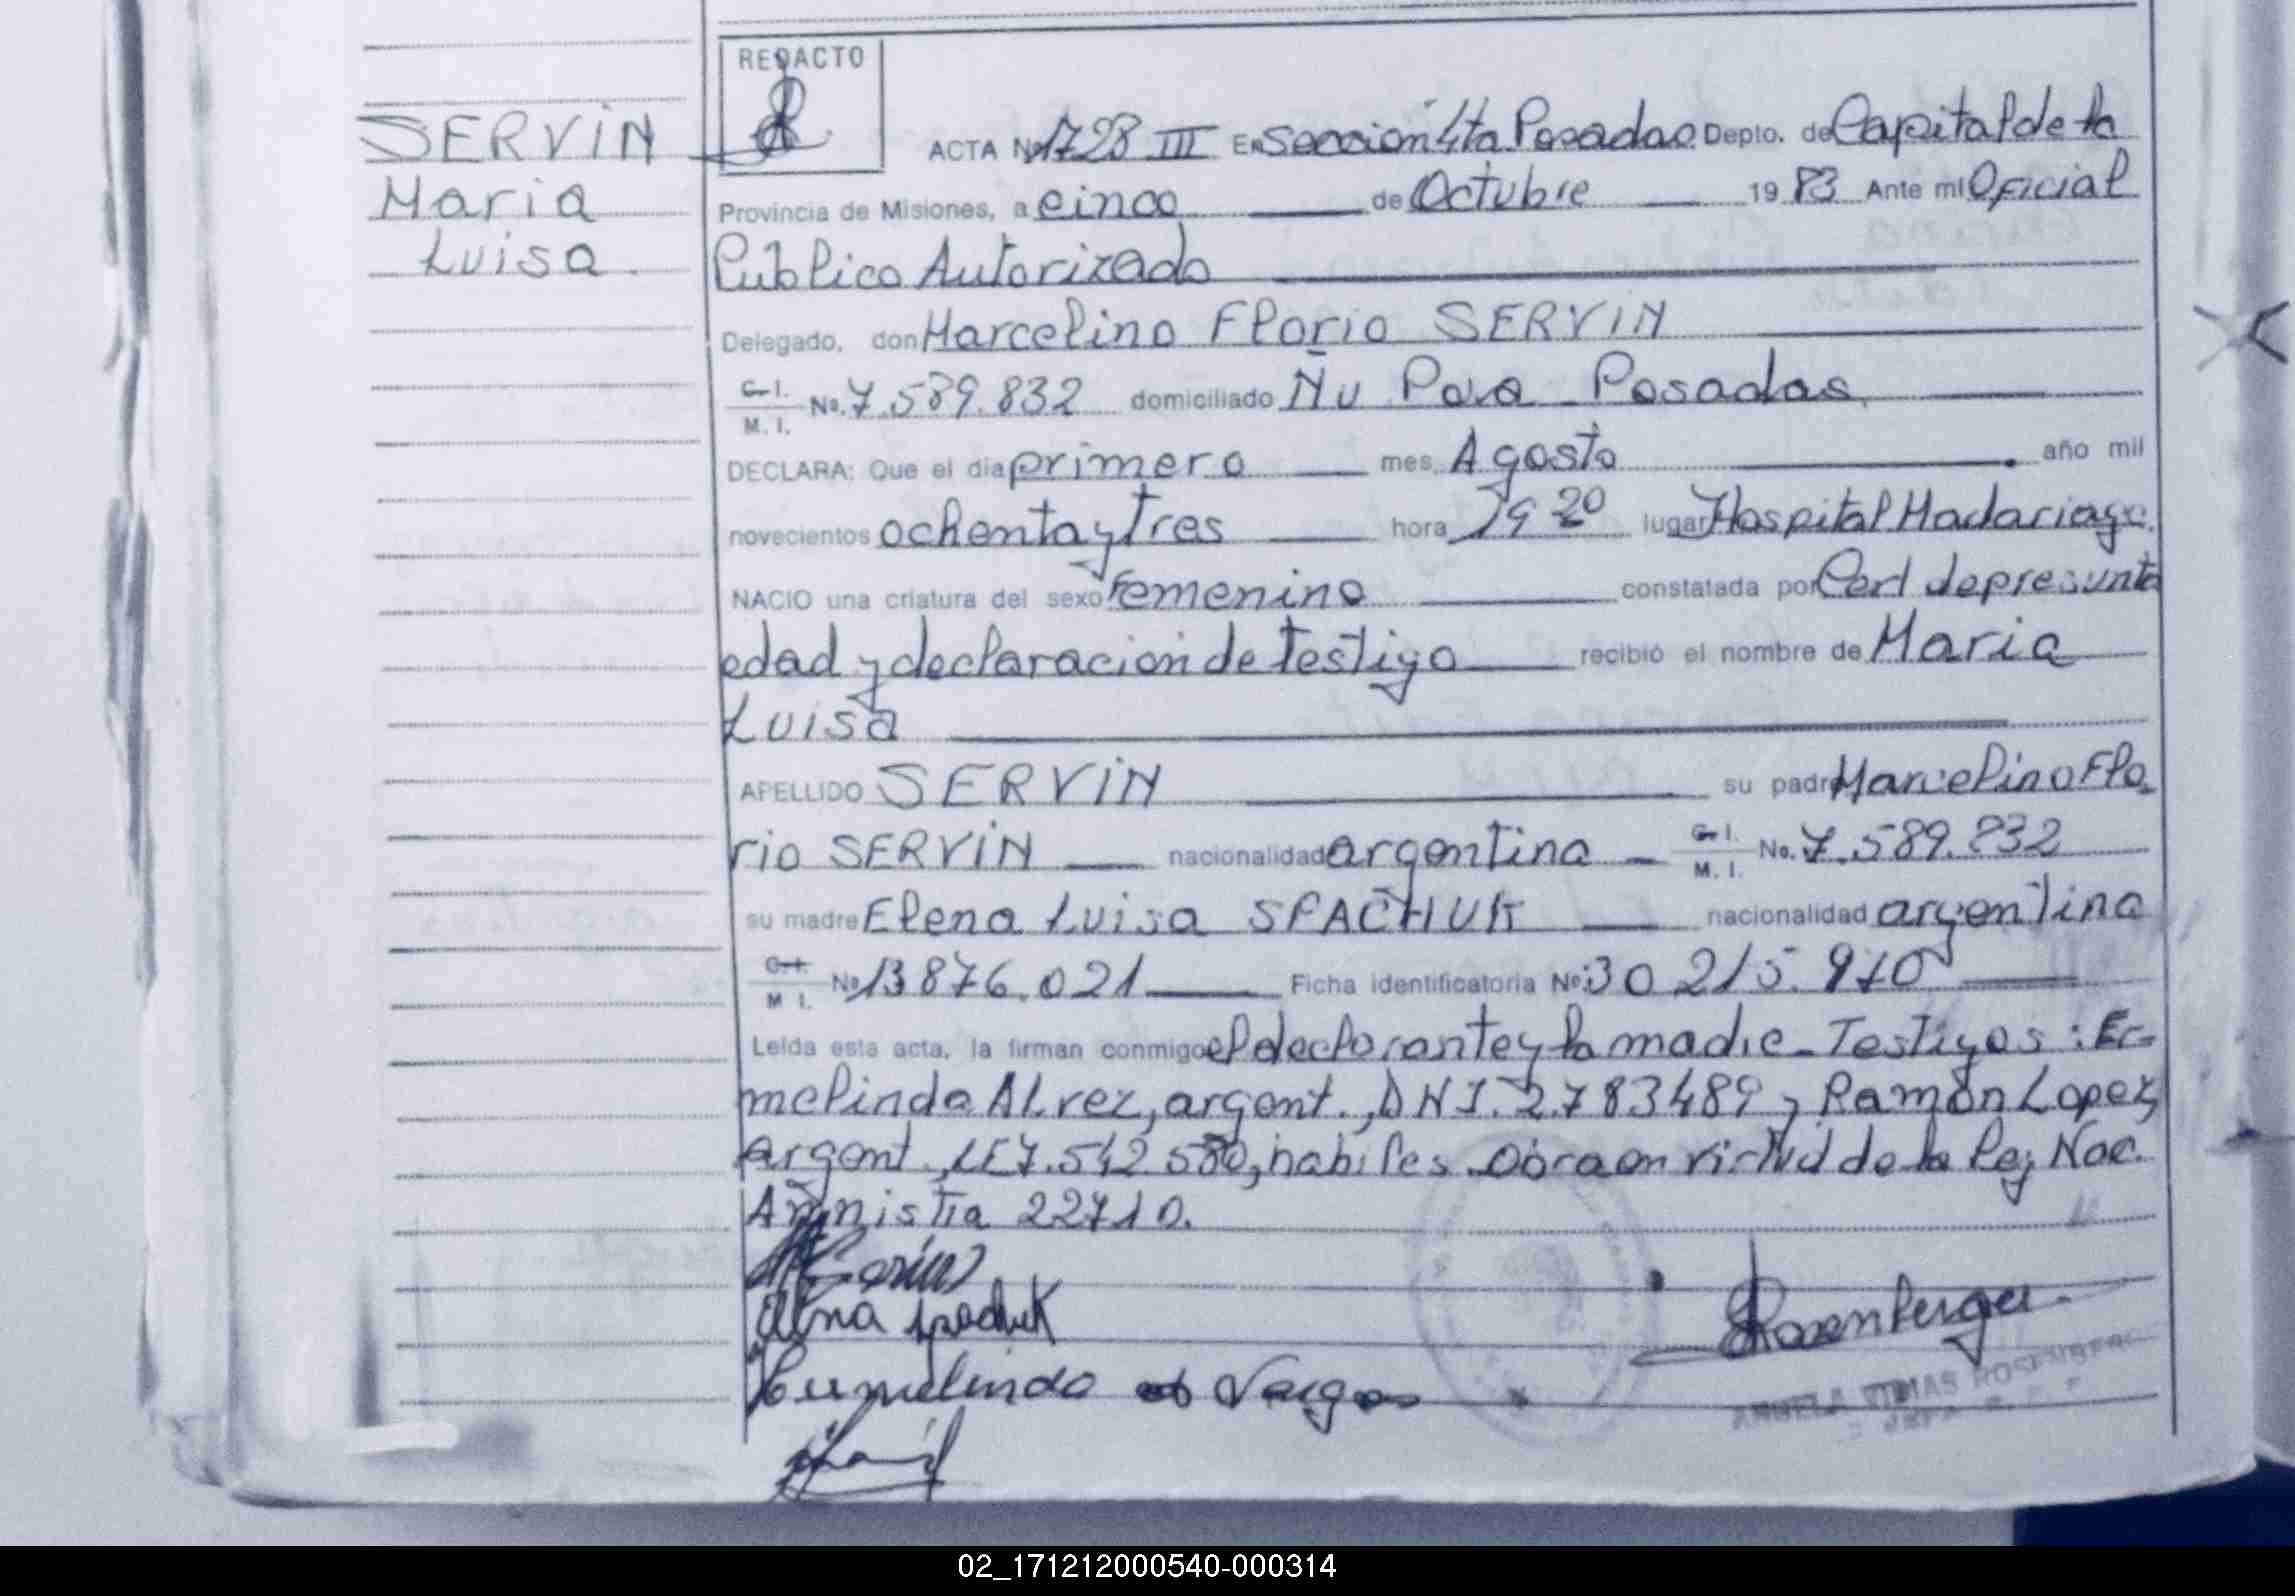 REDACTO
SERVIN
Maria
Luisa
ACTA No 1728 III En Sección 4ta Posadas Depto. de Capital de la
Provincia de Misiones, a cinco de Octubre 19 83 Ante mi Oficial
Publico Autorizado
Delegado, don Marcelino Florio SERVIN
C.I.
M.I. No. 7.589.832 domiciliado Ñu Pora Posadas
DECLARA: Que el dia primero mes Agosto año mil
novecientos ochenta y tres hora 19 20 lugar Hospital Madariaga.
NACIO una criatura del sexo femenino constatada por Cert de presunta
edad y declaración de testigo recibió el nombre de Maria
Luisa
APELLIDO SERVIN su padre Marcelino Flo
rio SERVIN nacionalidad argentina C.I.
M.I. No. 7.589.832
su madre Elena Luisa SPACHUK nacionalidad argentina
C.I.
M I. No 13876.021 Ficha identificatoria No 30 215.970
Leída esta acta, la firman conmigo el declarante y la madre - Testigos: Er-
melinda Alvez, argent., DNI. 2.783489 y Ramón Lopez,
argent., LE7.542 580, habiles. Obra en virtud de la Ley Nac.
Amnistia 22710.
Servin
Elena Spachuk
de Vargas
Rosenberger
ANGELA ROSENBERGER
02_171212000540-000314